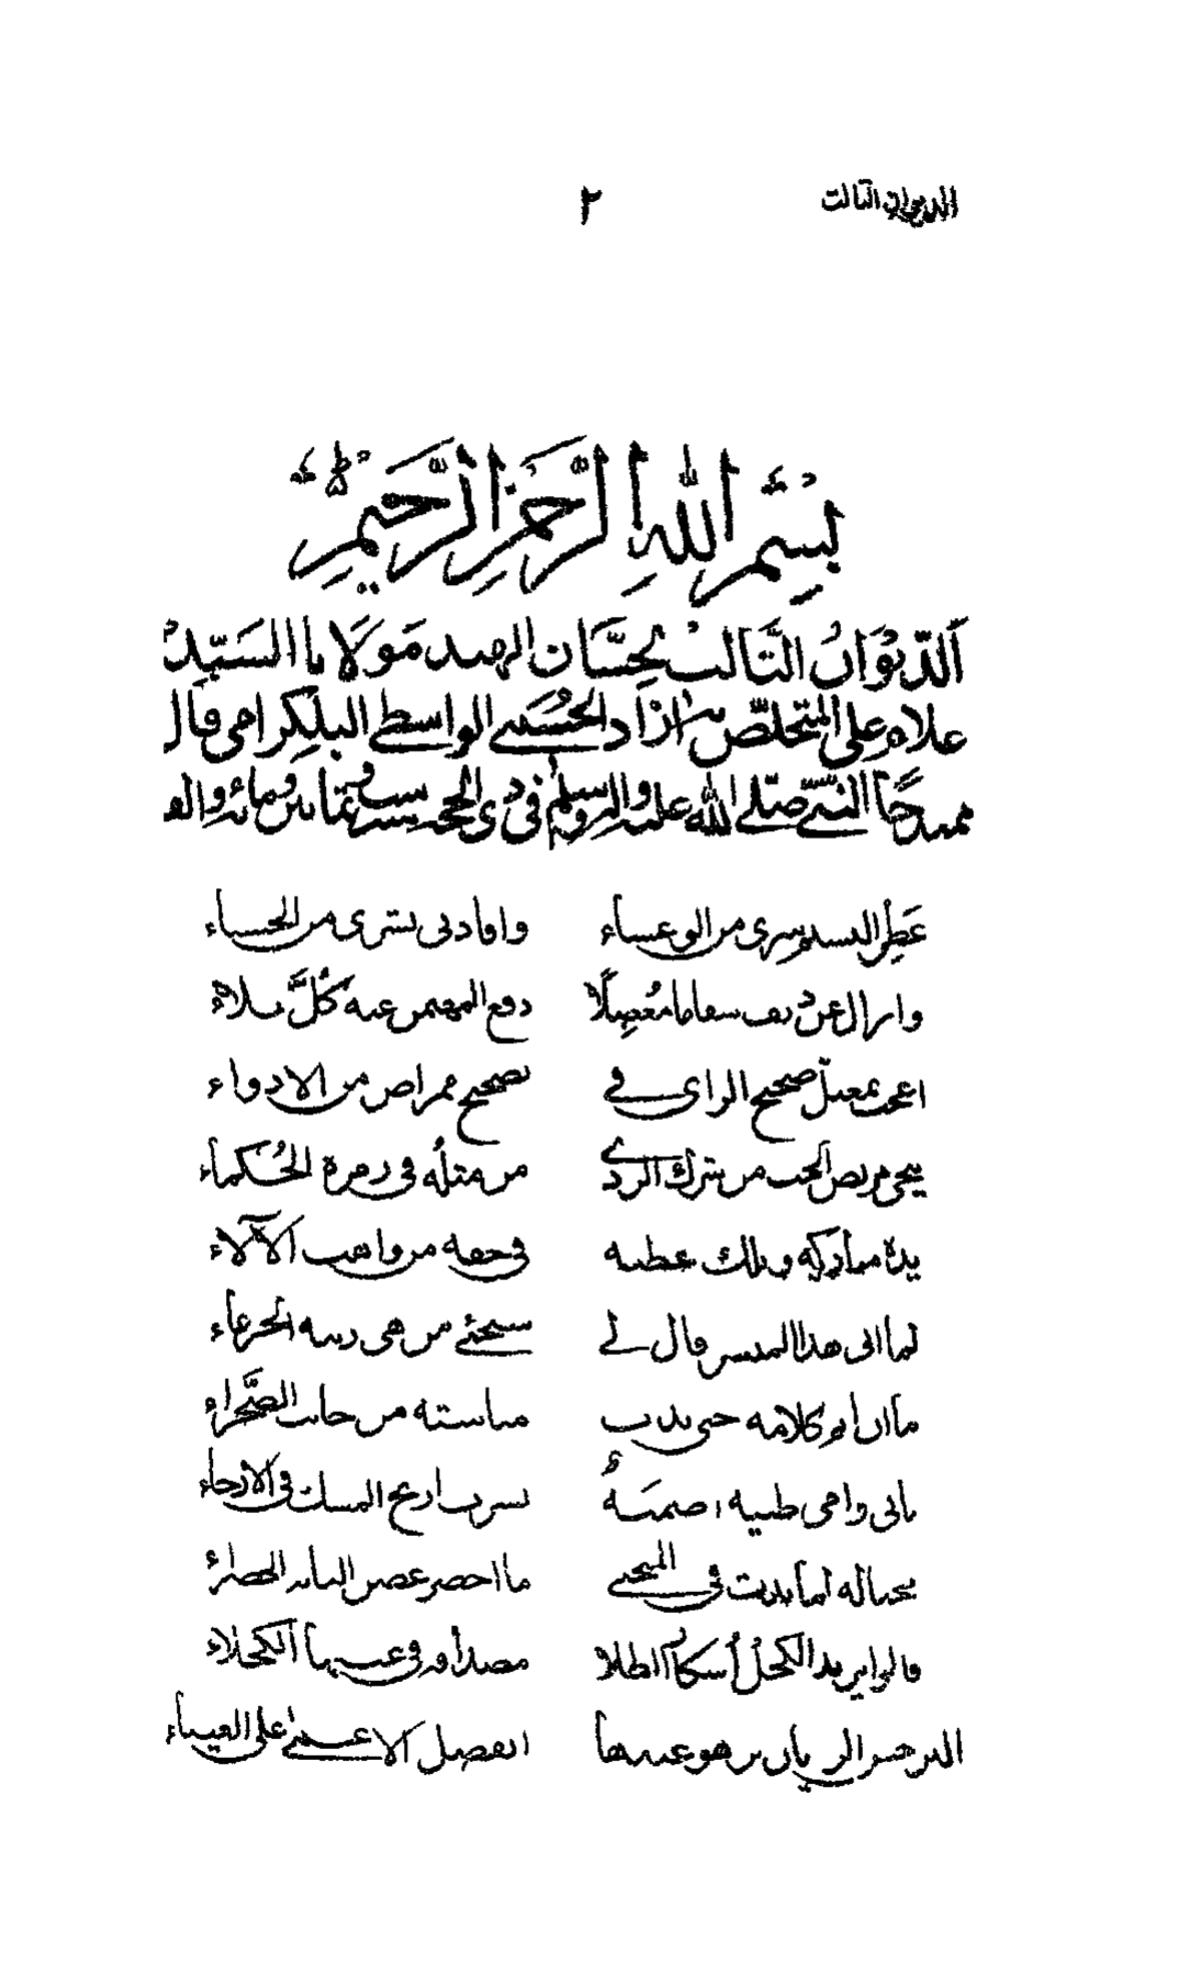 الديوان الثالث ٢
بسم الله الرحمن الرحيم
الديوان الثالث لحسان الهند مولانا السيد
غلام علي المتخلص بآزاد الحسيني الواسطي البلكرامي قال
ممتدحا النبي صلى الله عليه وآله وسلم في ذي الحجة سنة وثمانين ومائة والف
عطر النسيم سرى من الوعساء وافادني بشرى من الحسناء
وازال عن دنف سقاما معضلا دفع المهيمن عنه كل بلاء
اعجب بمعتل صحيح الراي في تصحيح ممراض من الادواء
يحيي مريض الحب من شرك الردى من مثله في زمرة الحكماء
يده مباركة وتلك عطية في حقه من واهب الآلاء
لما اتى هذا المبشر قال لي ستجيء من هي ربة الجرعاء
ما ان اتم كلامه حتى بدت مياسة من جانب الصحراء
بابي وامي ظبية نشرت اريج المسك في الارجاء
لما بدت في المنحنى ما احضر غصن البانة
قالوا يريد الكحل في عينها الكحلاء
النرجس الريان اتفضل الاعمى على العيناء